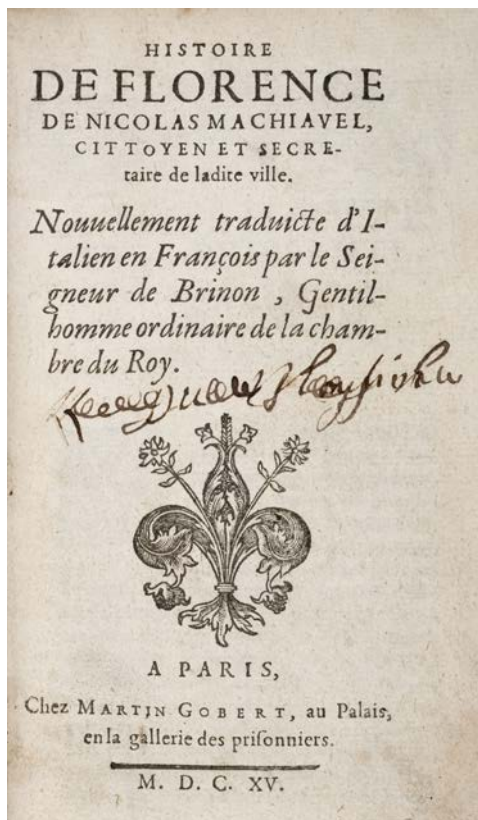 HISTOIRE
DE FLORENCE
DE NICOLAS MACHIAVEL,
CITTOYEN ET SECRE-
taire de ladite ville.
Nouuellement traduicte d'I-
talien en François par le Sei-
gneur de Brinon, Gentil-
homme ordinaire de la cham-
bre du Roy.
A PARIS,
Chez MARTIN GOBERT, au Palais,
en la gallerie des priſonniers.
M. D. C. XV.